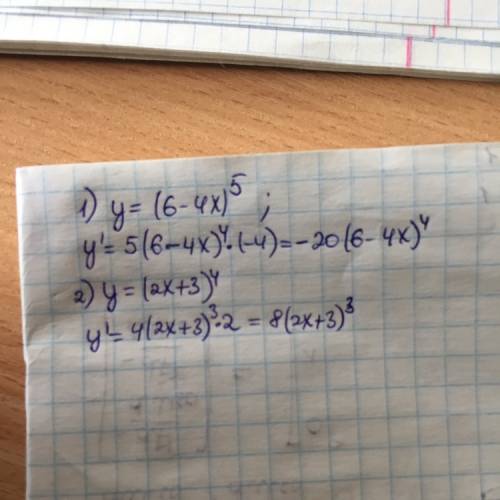 1) y = (6 - 4x)⁵ ;
y' = 5(6 - 4x)⁴ · (-4) = -20(6 - 4x)⁴
2) y = (2x+3)⁴
y' = 4(2x+3)³ · 2 = 8(2x+3)³